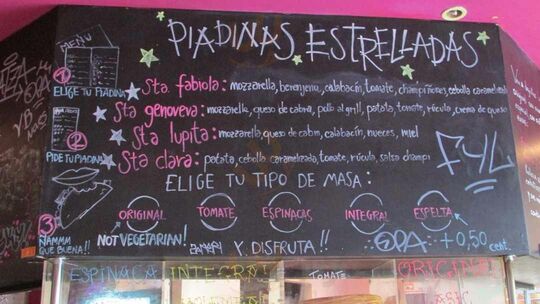 PIADINAS ESTRELLADAS
MENÚ
1 ELIGE TU PIADINA
Sta. fabiola: mozzarella, berenjena, calabacín, tomate, champiñones, cebolla caramelizada
Sta genoveva: mozzarella, queso de cabra, pollo al grill, patata, tomate, rúcula, crema de queso
2
Sta lupita: mozzarella, queso de cabra, calabacín, nueces, miel
PIDE TU PIADINA
Sta clara: patata, cebolla caramelizada, tomate, rúcula, salsa champi
FYL
ELIGE TU TIPO DE MASA:
3
ORIGINAL TOMATE ESPINACAS INTEGRAL ESPELTA
ÑAMMM QUE BUENA!!
NOT VEGETARIAN!
Y DISFRUTA!!
+0,50 cent.
ESPINACA INTEGRAL TOMATE ORIGINAL